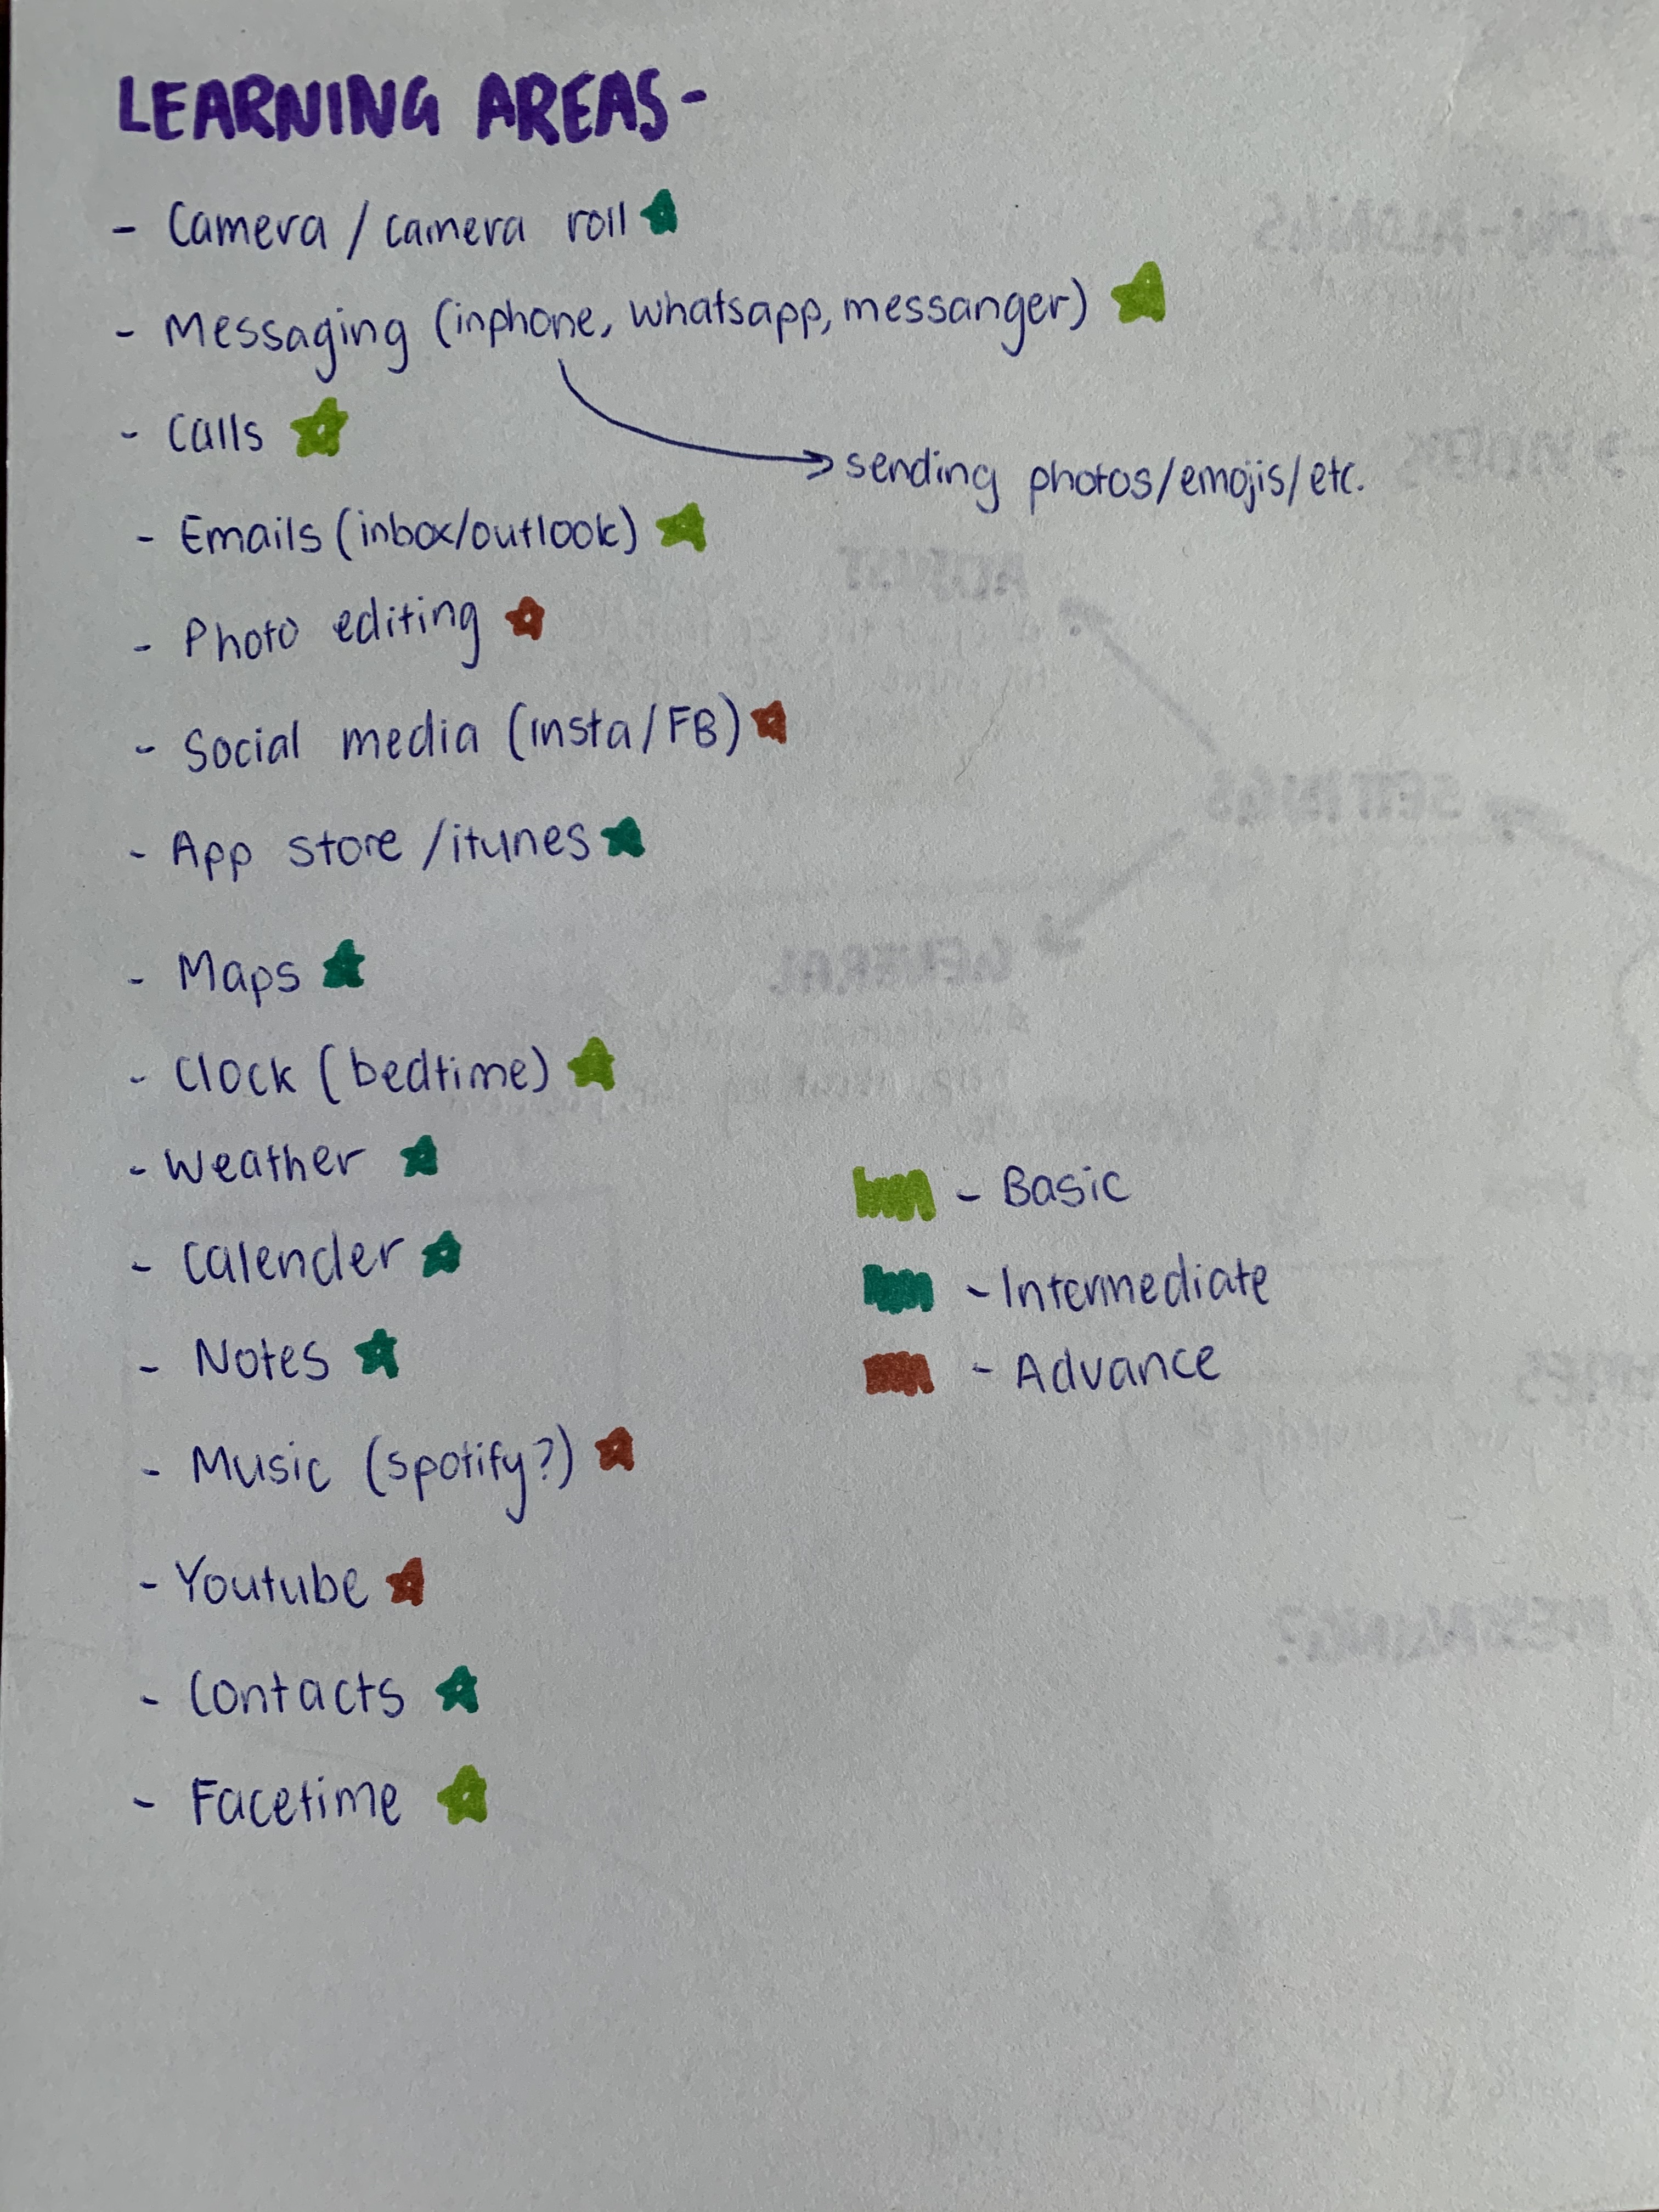 LEARNING AREAS-
- Camera / camera roll
- Messaging (inphone, whatsapp, messanger)
- Calls
sending photos/emojis/etc.
- Emails (inbox/outlook)
- Photo editing
- Social media (insta/FB)
- App store /itunes
- Maps
- Clock (bedtime)
- Weather
- Basic
- Calender
- Intermediate
- Notes
- Advance
- Music (spotify?)
- Youtube
- Contacts
- Facetime